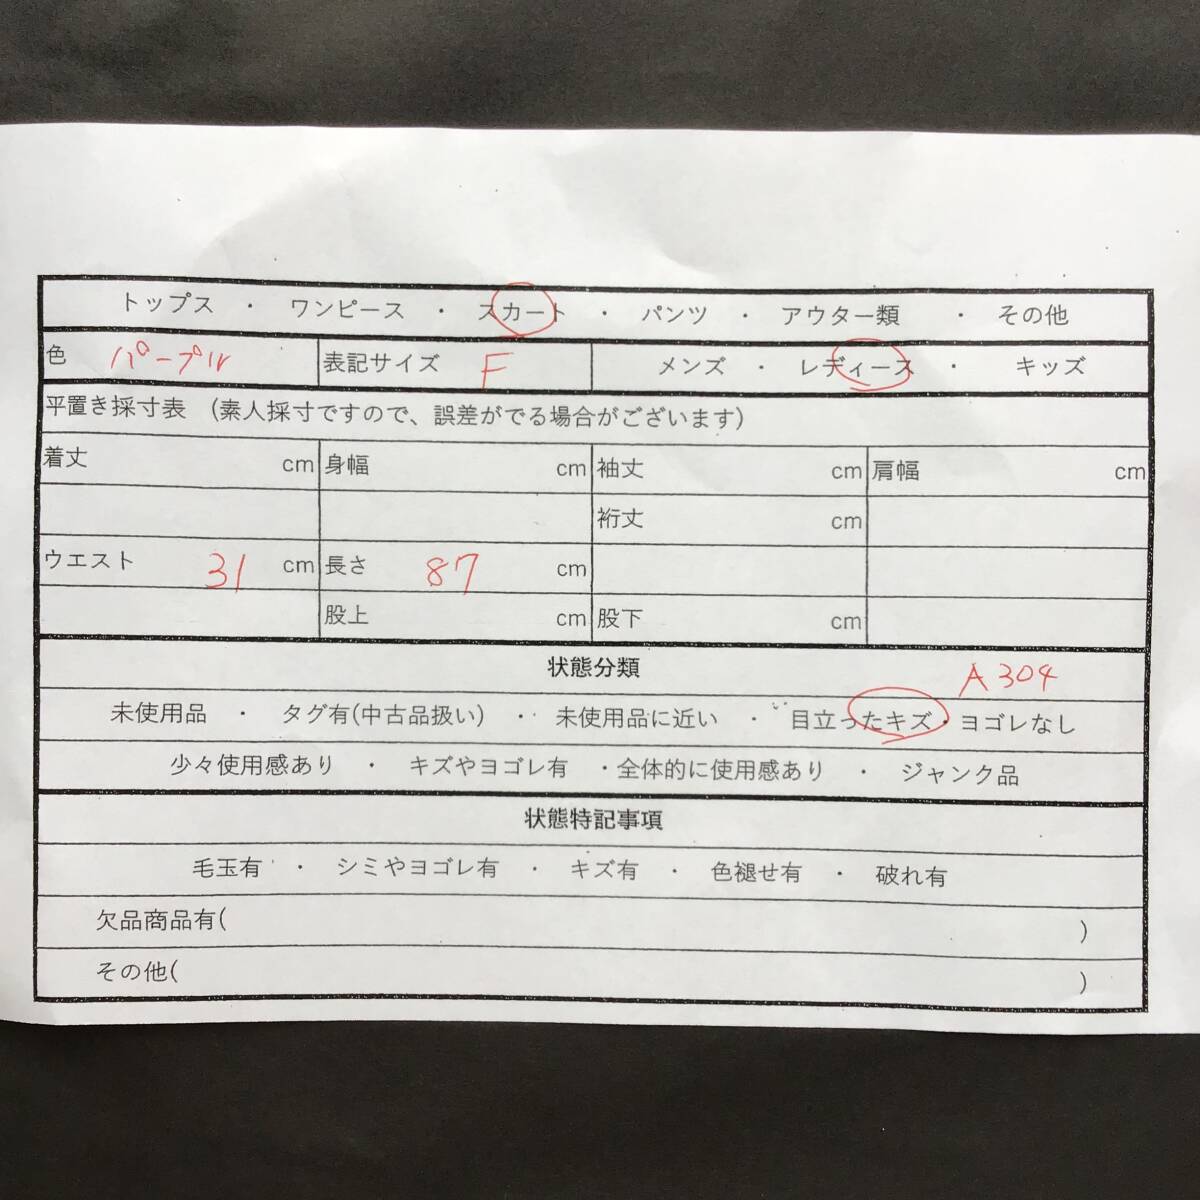 トップス ・ ワンピース ・ スカート ・ パンツ ・ アウター類 ・ その他
色 パープル 表記サイズ F メンズ ・ レディース ・ キッズ
平置き採寸表 (素人採寸ですので、誤差がでる場合がございます)
着丈 cm 身幅 cm 袖丈 cm 肩幅 cm
裄丈 cm
ウエスト 31 cm 長さ 87 cm
股上 cm 股下 cm
状態分類 A304
未使用品 ・ タグ有(中古品扱い) ・ 未使用品に近い ・ 目立ったキズ・ヨゴレなし
少々使用感あり ・ キズやヨゴレ有 ・全体的に使用感あり ・ ジャンク品
状態特記事項
毛玉有 ・ シミやヨゴレ有 ・ キズ有 ・ 色褪せ有 ・ 破れ有
欠品商品有( )
その他( )